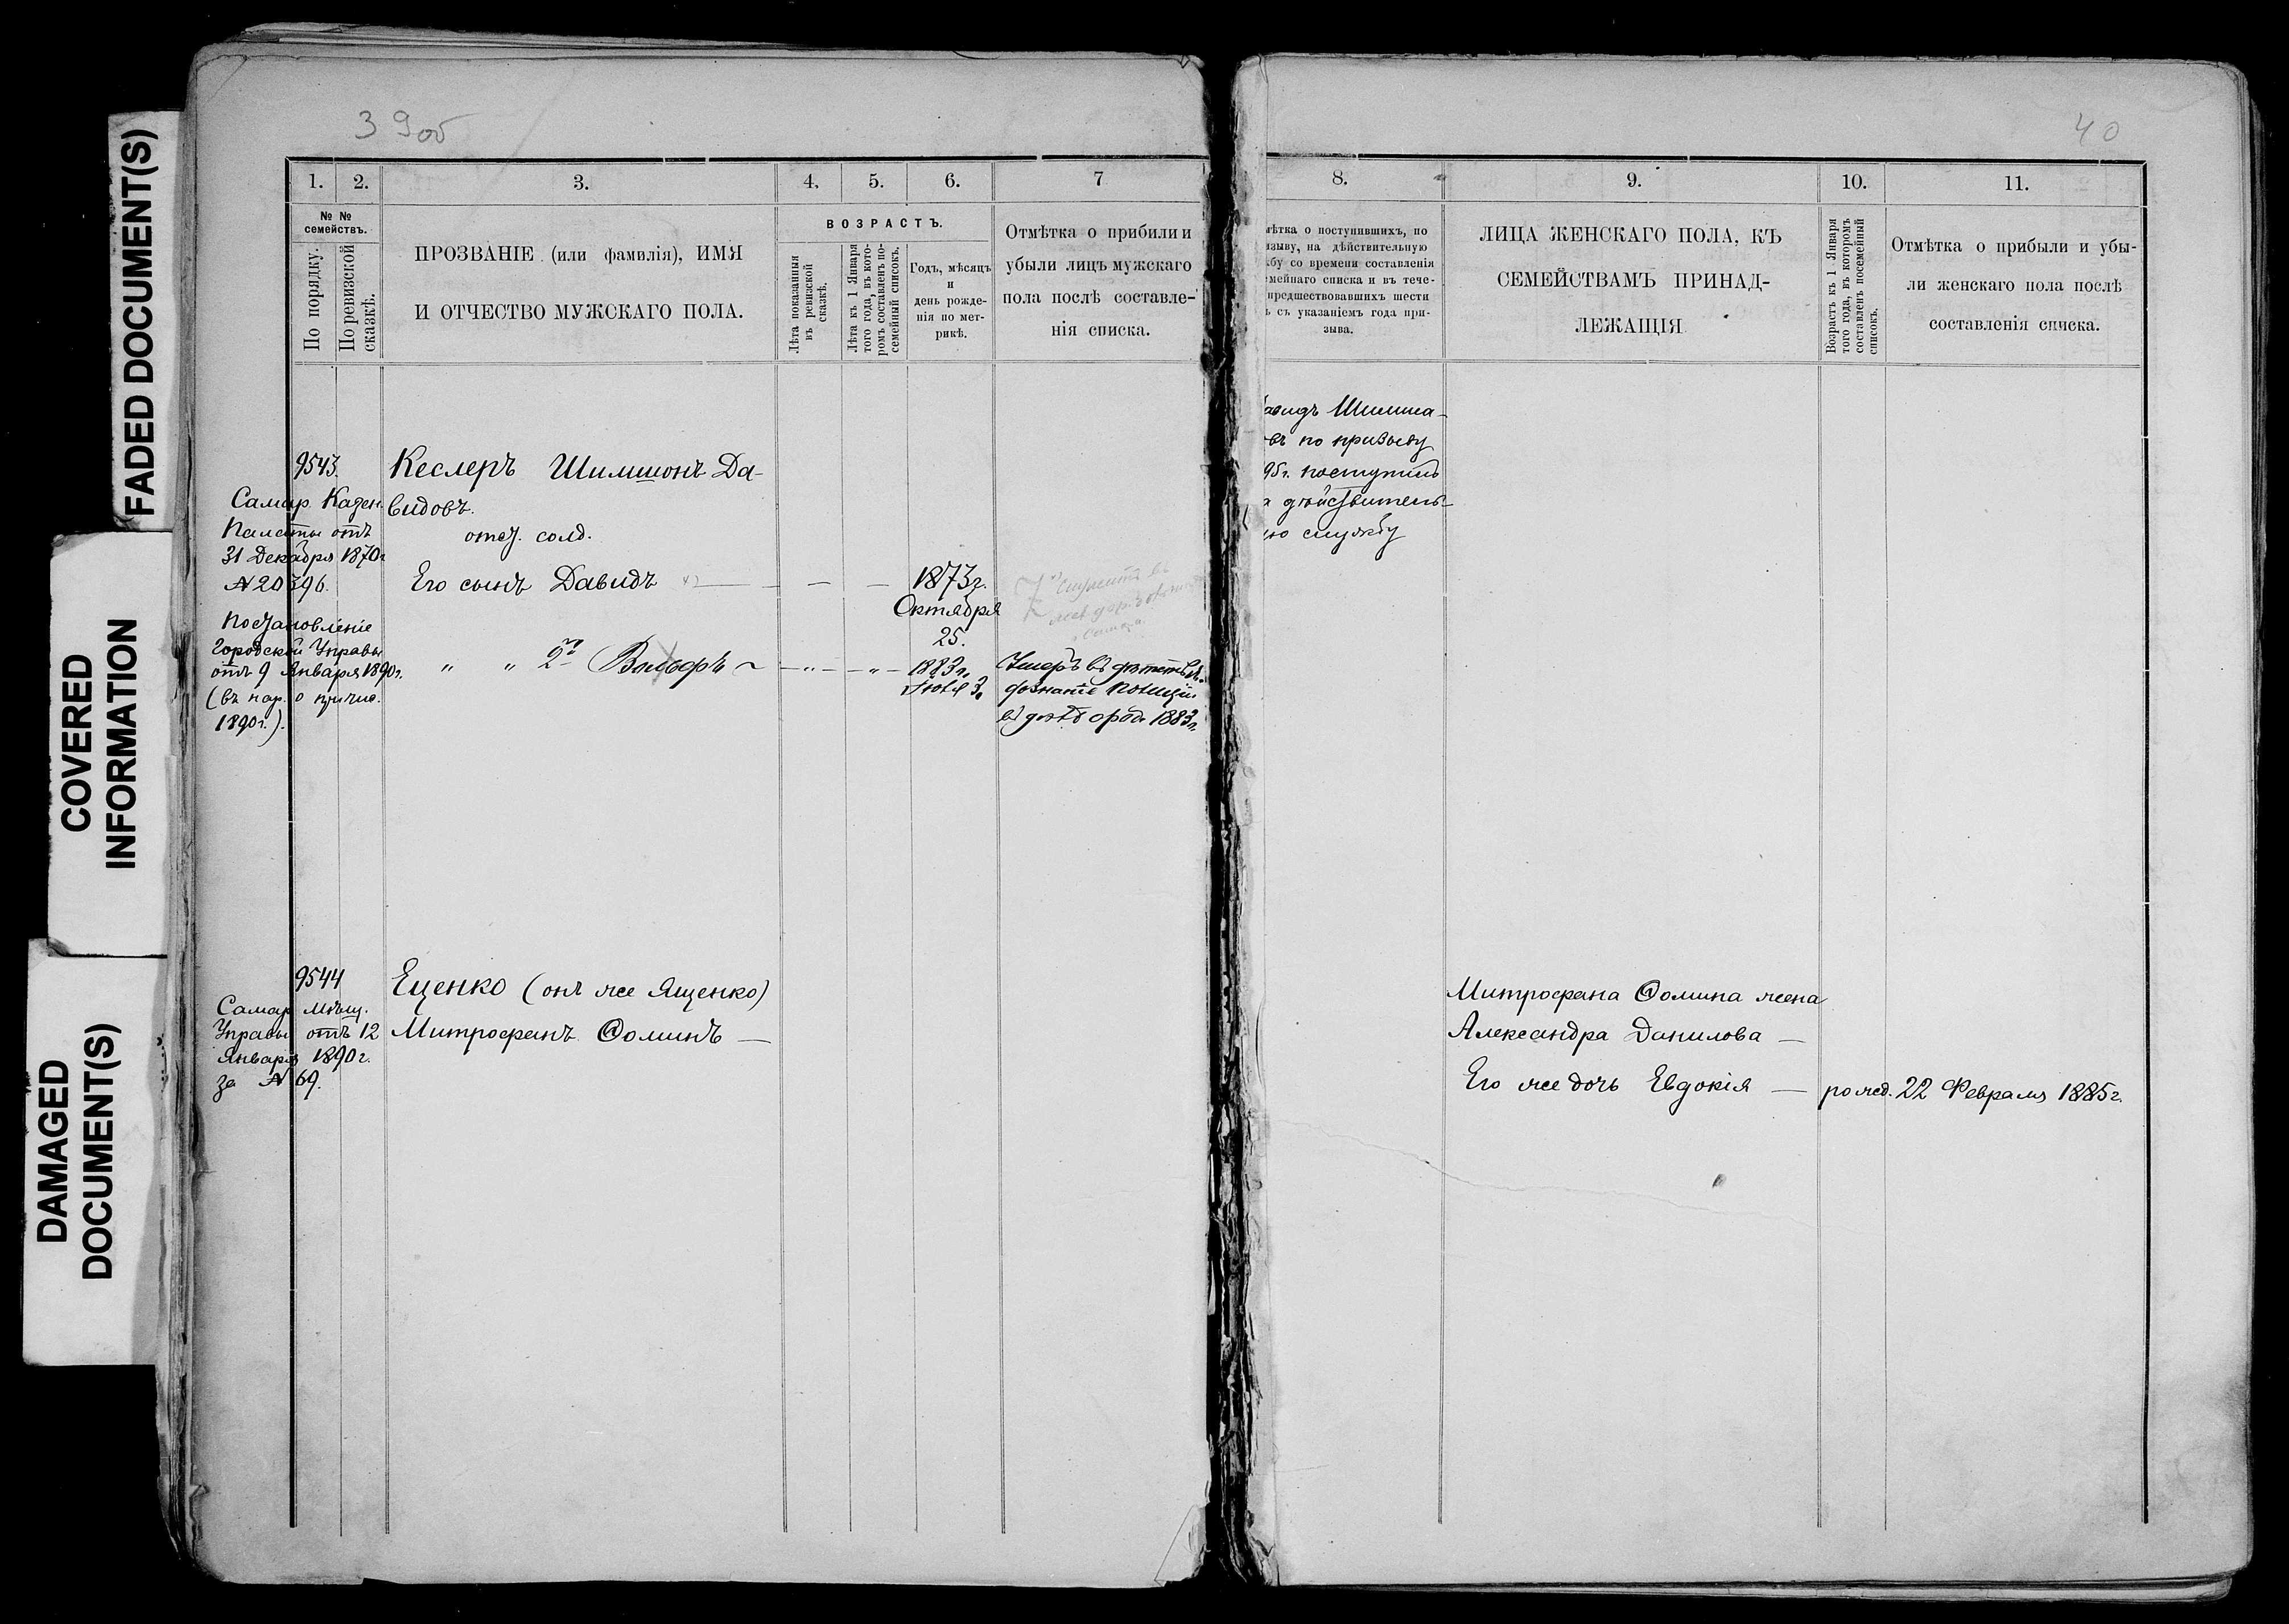 FADED DOCUMENT(S)
COVERED
INFORMATION
DAMAGED
DOCUMENT(S)
39об
1.
2.
3.
4.
5.
6.
7
№ №
семействъ.
По порядку.
По ревизской
сказкѣ.
ПРОЗВАНІЕ (или фамилія), ИМЯ
И ОТЧЕСТВО МУЖСКАГО ПОЛА.
ВОЗРАСТЪ.
Лѣта показанныя
въ ревизской
сказкѣ.
Лѣта къ 1 Января
того года, въ кото-
ромъ составленъ по-
семейный списокъ.
Годъ, мѣсяцъ
и
день рожде-
нія по мет-
рикѣ.
Отмѣтка о прибыли и
убыли лицъ мужскаго
пола послѣ составле-
нія списка.
9543
Самар. Казен.
Палаты отъ
31 Декабря 1870г
№ 20396.
Постановленіе
Городской Управы
отъ 9 Января 1890г.
(въ нар. о причис.
1890г.).
Кеслеръ Шимшонъ Да-
видовъ.
отст. солд.
Его сынъ Давидъ
1873г.
Октября
25.
" " 2й Вольфъ
1883г.
Іюля 3.
Умеръ въ
дознаніе полиціи
1883г.
9544
Самар. Мѣщ.
Управы отъ 12
Января 1890г.
за № 69.
Еценко (онъ же Ященко)
Митрофанъ Ѳоминъ —
40
8.
9.
10.
11.
мѣтка о поступившихъ, по
ызыву, на дѣйствительную
бу со времени составленія
емейнаго списка и въ тече-
предшествовавшихъ шести
ъ съ указаніемъ года при-
зыва.
ЛИЦА ЖЕНСКАГО ПОЛА, КЪ
СЕМЕЙСТВАМЪ ПРИНАД-
ЛЕЖАЩІЯ
Возрастъ къ 1 Января
того года, въ которомъ
составленъ посемейный
списокъ.
Отмѣтка о прибыли и убы-
ли женскаго пола послѣ
составленія списка.
авидъ Шимша-
въ по призыву
95г. поступилъ
а дѣйствитель-
ую службу
Митрофана Ѳомина жена
Александра Данилова —
Его же дочь Евдокія — рожд. 22 Февраля 1885г.